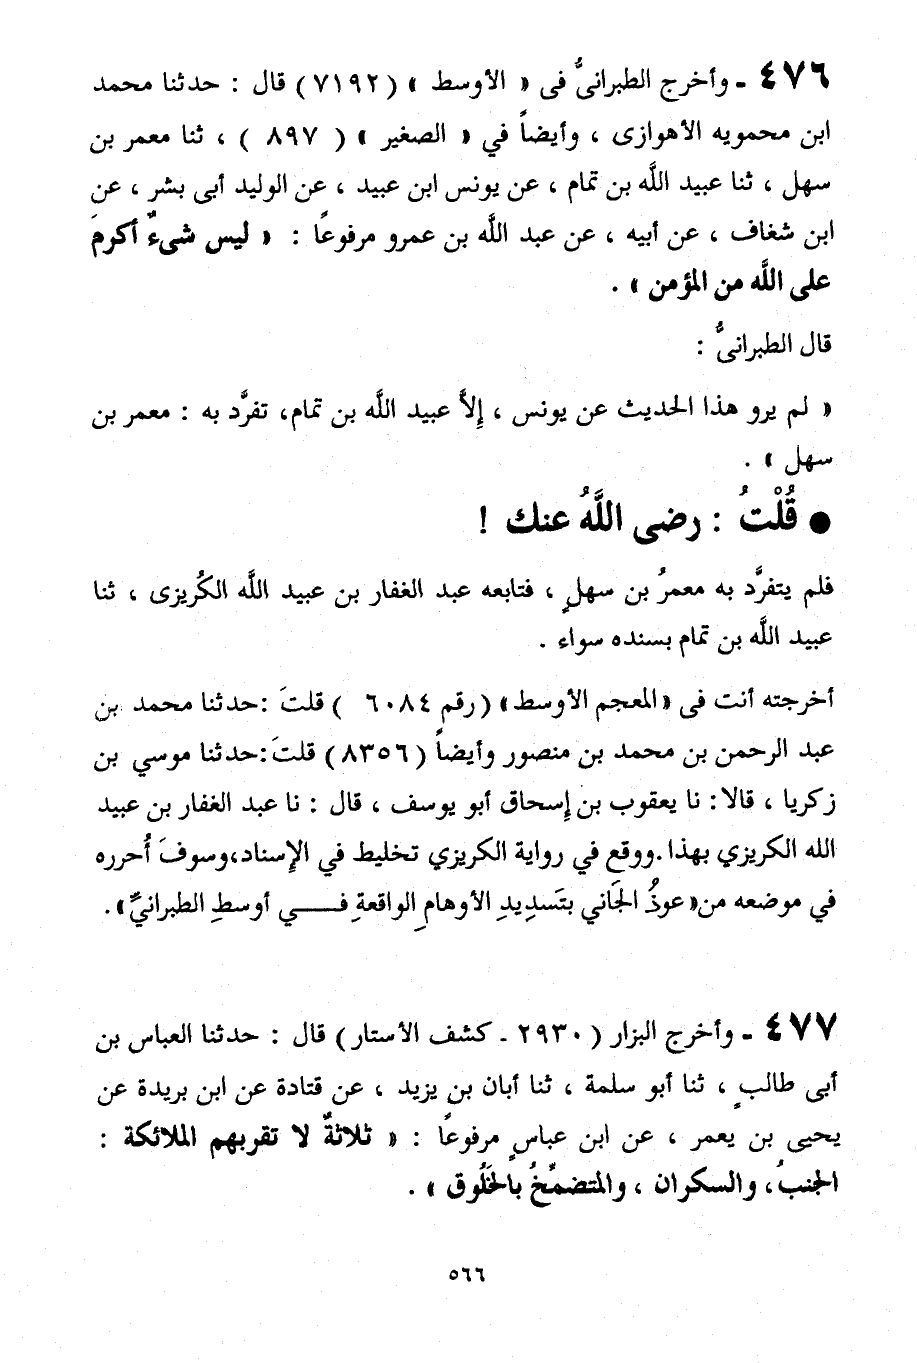 ٤٧٦ - وأخرج الطبرانىُّ فى « الأوسط » (٧١٩٢) قال : حدثنا محمد
ابن محمويه الأهوازى ، وأيضاً في « الصغير » ( ٨٩٧ ) ، ثنا معمر بن
سهل ، ثنا عبيد اللَّه بن تمام ، عن يونس ابن عبيد ، عن الوليد أبى بشر ، عن
ابن شغاف ، عن أبيه ، عن عبد اللَّه بن عمرو مرفوعاً : « ليس شىءٌ أكرمَ
على اللَّه من المؤمن » .
قال الطبرانىُّ :
« لم يرو هذا الحديث عن يونس ، إلاَّ عبيد اللَّه بن تمام، تفرَّد به : معمر بن
سهل » .
● قُلْتُ : رضى اللَّهُ عنك !
فلم يتفرَّد به معمرُ بن سهلٍ ، فتابعه عبد الغفار بن عبيد اللَّه الكُريزى ، ثنا
عبيد اللَّه بن تمام بسنده سواء .
أخرجته أنت فى «المعجم الأوسط» (رقم ٦٠٨٤ ) قلتَ :حدثنا محمد بن
عبد الرحمن بن محمد بن منصور وأيضاً (٨٣٥٦) قلتَ:حدثنا موسي بن
زكريا ، قالا: نا يعقوب بن إسحاق أبو يوسف ، قال : نا عبد الغفار بن عبيد
الله الكريزي بهذا.ووقع في رواية الكريزي تخليط في الإسناد،وسوفَ أُحرره
في موضعه من«عوذُ الجَاني بتَسدِيدِ الأوهامِ الواقعةِ فــــي أوسطِ الطبرانيِّ».
٤٧٧ - وأخرج البزار (٢٩٣٠ - كشف الأستار) قال : حدثنا العباس بن
أبى طالبٍ ، ثنا أبو سلمة ، ثنا أبان بن يزيد ، عن قتادة عن ابن بريدة عن
يحيى بن يعمر ، عن ابن عباسٍ مرفوعاً : « ثلاثةٌ لا تقربهم الملائكة :
الجنبُ، والسكران ، والمتضمِّخُ بالخَلُوق » .
٥٦٦